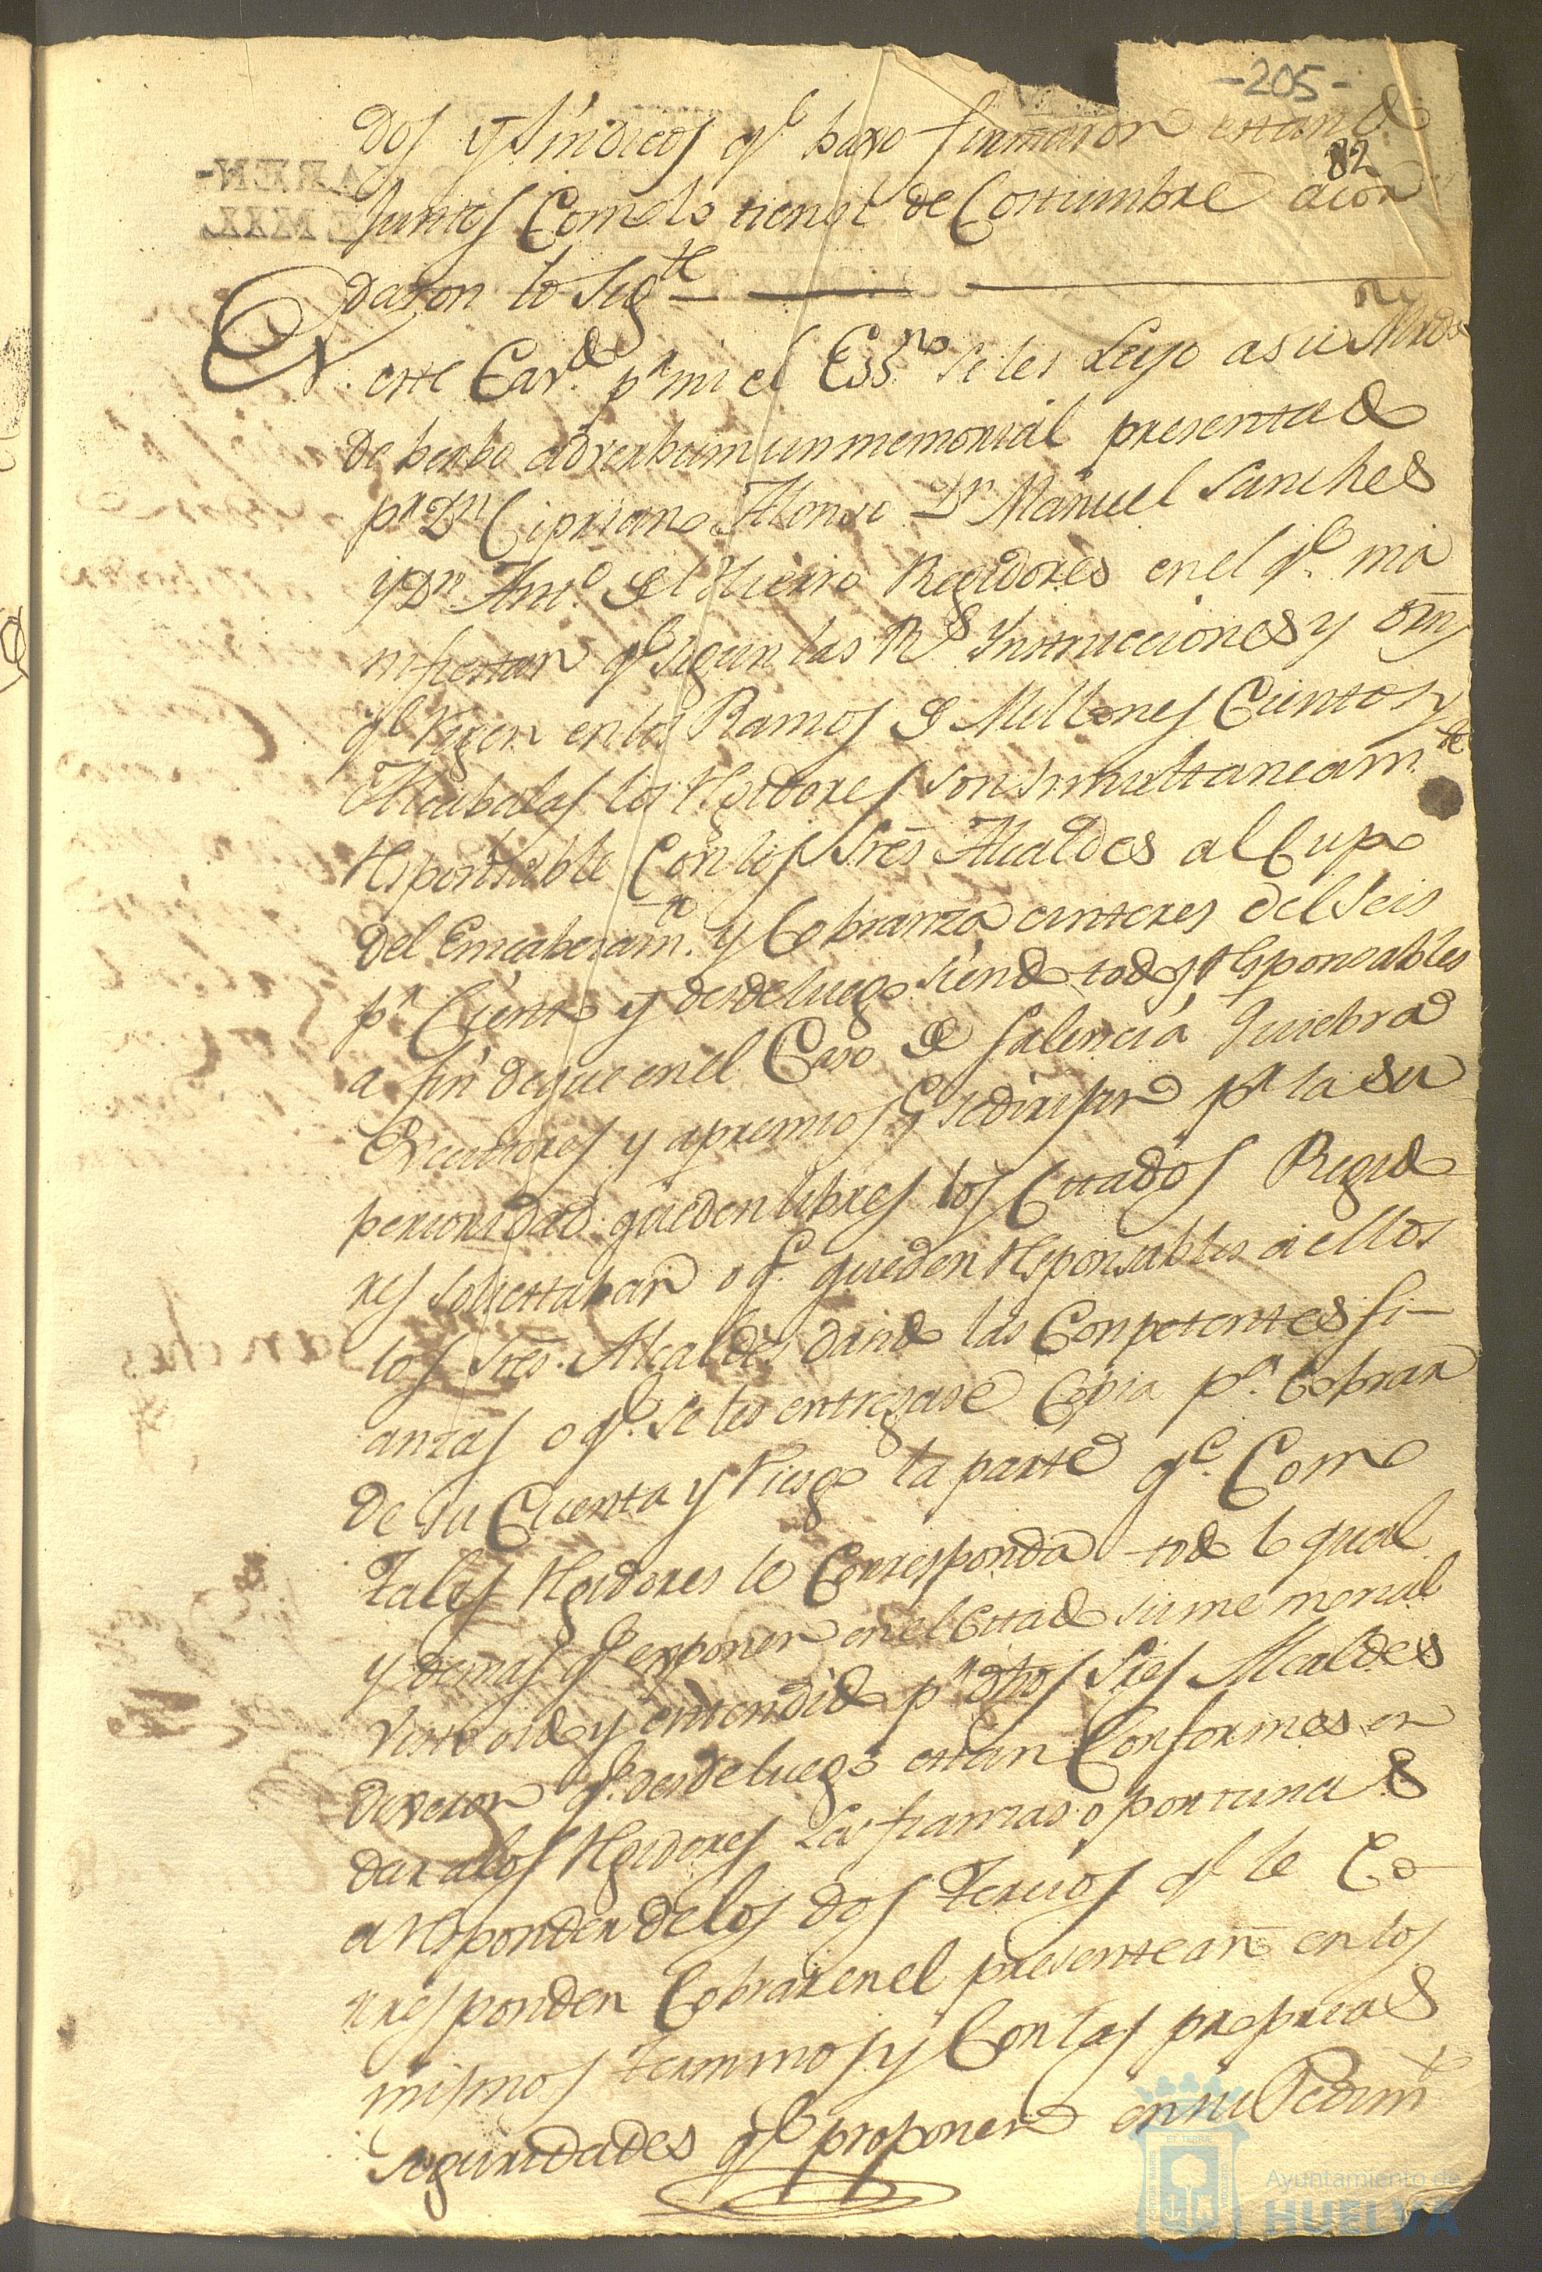 -205-
82
dos y Síndicos qᵉ baxo firmaron estando
Juntos Como lo tienen de Costumbre acor
daron lo sigᵗᵉ
En este Cavᵈᵒ pʳ mi el Essⁿᵒ se les Leyo a sus Mrds
de berbo adverbum un memorial presentado
pʳ Dⁿ Cipriano Alonso Dⁿ Manuel Sanches
y Dⁿ Antᵒ del Hierro Regidores en el qᵉ ma
nifiestan qᵉ segun las Rˢ Ynstrucciones y orns
qᵉ rigen en los Ramos de Millones Cientos y
Alcabalas los Rgidores son simultaneamᵗᵉ
Rsponsable Con los Sres Alcaldes al Cupo
del Encabezamᵗᵒ y Cobranza e interes del seis
pʳ Ciento y desde luego siendo todos Rsponsables
a fin de que en el Caso de falencia quiebra
Executores y apremios qᵉ se dirijan pʳ la su
perioridad queden libres los Citados Regido
res solicitaban o qᵉ queden Rsponsables a ellos
los Sres Alcaldes dando las Conpetentes fi-
anzas o qᵉ se les entregase Copia pᵃ Cobrar
de su Cuenta y Riesgo la parte qᵉ Como
tales Rgidores le Corresponda todo lo qual
y demas qᵉ exponen en el Citado su memorial
visto oido y entendido pʳ dhos Sres Alcaldes
dixeron qᵉ desde luego estan Conformes en
dar a los Rgidores las fianzas oportunas
a Rsponder de los dos tercios qᵉ le Co-
rresponden Cobrar en el presente año en los
mismos terminos y Con las propias
seguridades qᵉ proponen en su Pedimᵗᵒ
Ayuntamiento de
HUELVA